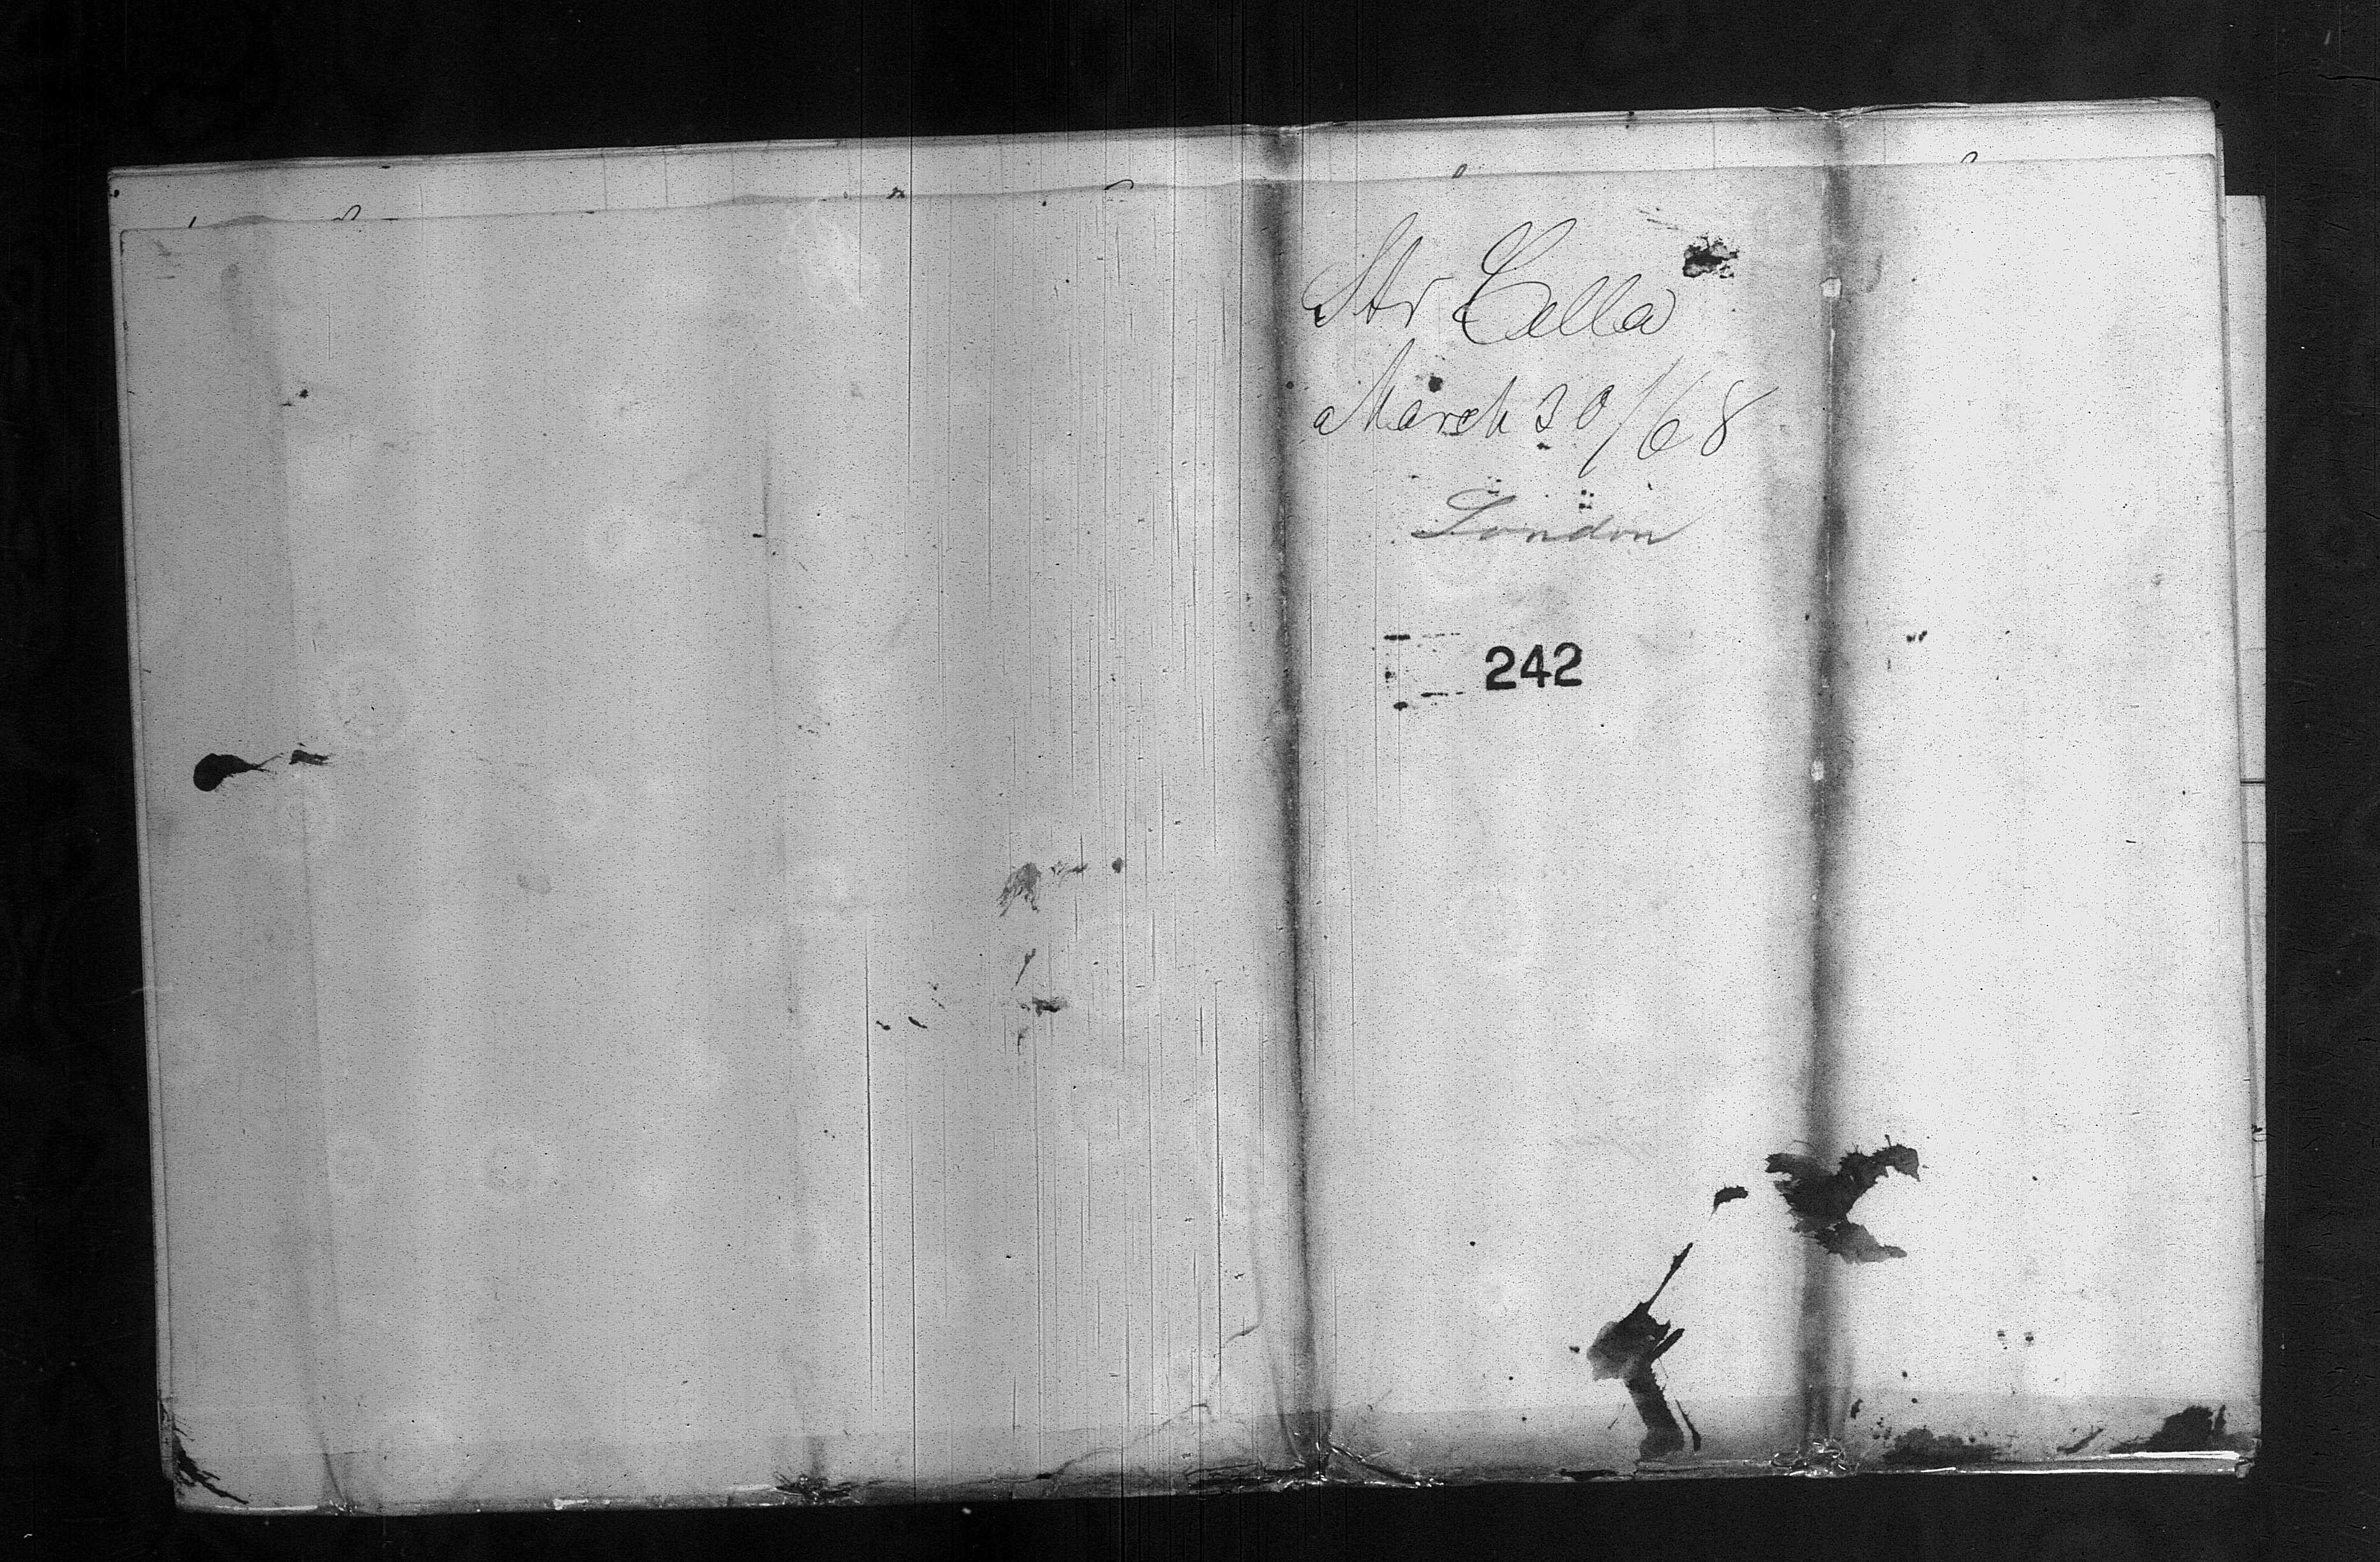 Str Cella
March 30/68
London
242